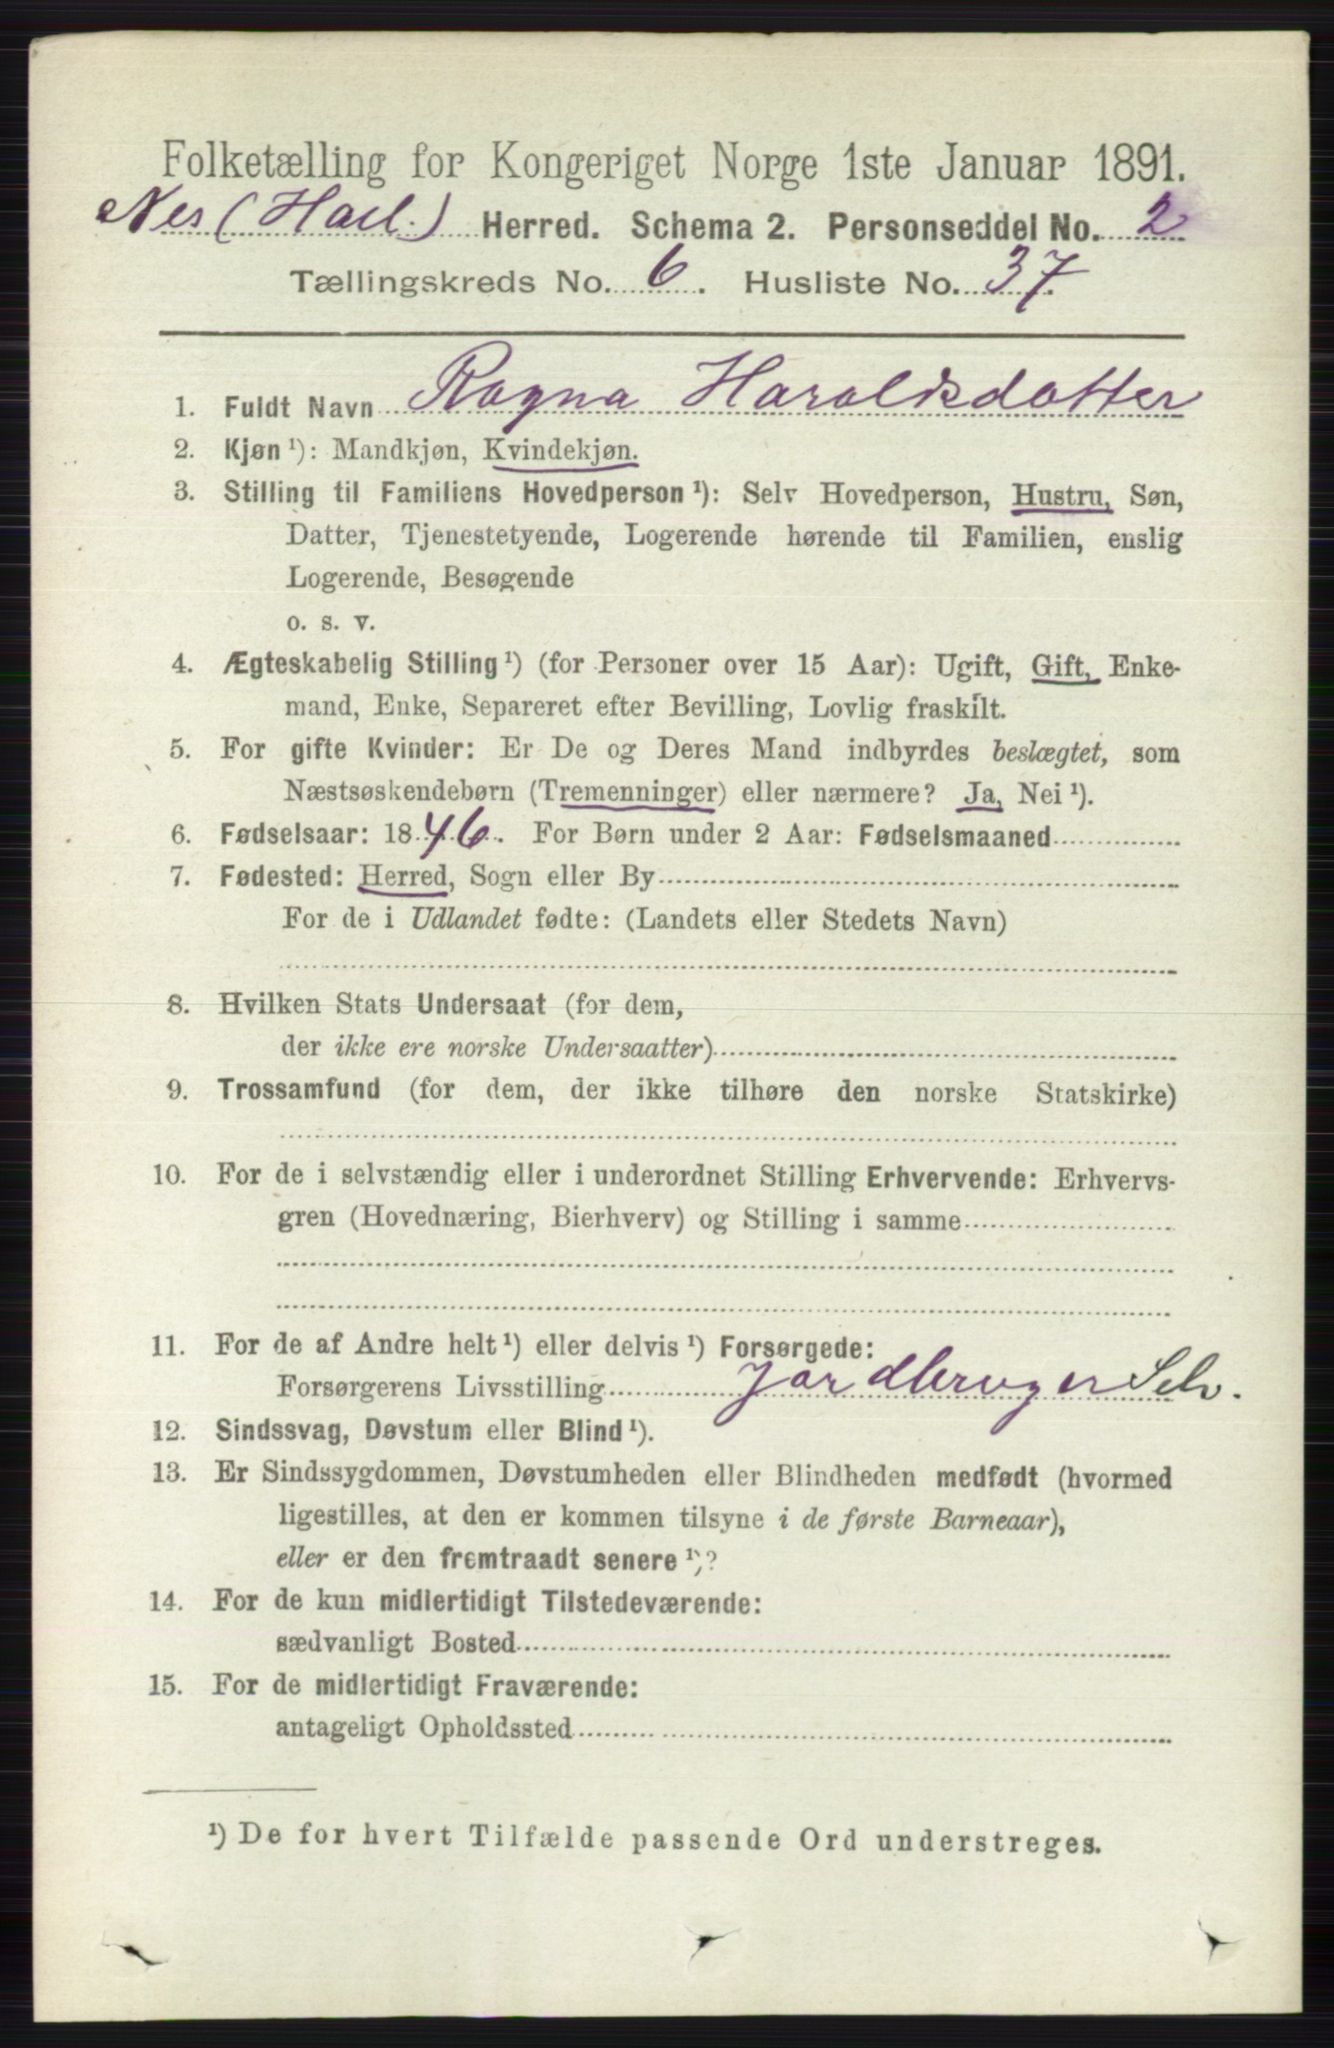 Folketælling for Kongeriget Norge 1ste Januar 1891.
Nes (Hall.) Herred. Schema 2. Personseddel No. 2
Tællingskreds No. 6. Husliste No. 37.
1. Fuldt Navn Ragna Haroldsdatter
2. Kjøn ¹): Mandkjøn, Kvindekjøn.
3. Stilling til Familiens Hovedperson ¹): Selv Hovedperson, Hustru, Søn,
Datter, Tjenestetyende, Logerende hørende til Familien, enslig
Logerende, Besøgende
o. s. v.
4. Ægteskabelig Stilling ¹) (for Personer over 15 Aar): Ugift, Gift, Enke-
mand, Enke, Separeret efter Bevilling, Lovlig fraskilt.
5. For gifte Kvinder: Er De og Deres Mand indbyrdes beslægtet, som
Næstsøskendebørn (Tremenninger) eller nærmere? Ja, Nei ¹).
6. Fødselsaar: 1846. For Børn under 2 Aar: Fødselsmaaned
7. Fødested: Herred, Sogn eller By
For de i Udlandet fødte: (Landets eller Stedets Navn)
8. Hvilken Stats Undersaat (for dem,
der ikke ere norske Undersaatter)
9. Trossamfund (for dem, der ikke tilhøre den norske Statskirke)
10. For de i selvstændig eller i underordnet Stilling Erhvervende: Erhvervs-
gren (Hovednæring, Bierhverv) og Stilling i samme
11. For de af Andre helt ¹) eller delvis ¹) Forsørgede:
Forsørgerens Livsstilling Jardbruger Selv.
12. Sindssvag, Døvstum eller Blind ¹).
13. Er Sindssygdommen, Døvstumheden eller Blindheden medfødt (hvormed
ligestilles, at den er kommen tilsyne i de første Barneaar),
eller er den fremtraadt senere ¹)?
14. For de kun midlertidigt Tilstedeværende:
sædvanligt Bosted
15. For de midlertidigt Fraværende:
antageligt Opholdssted
¹) De for hvert Tilfælde passende Ord understreges.